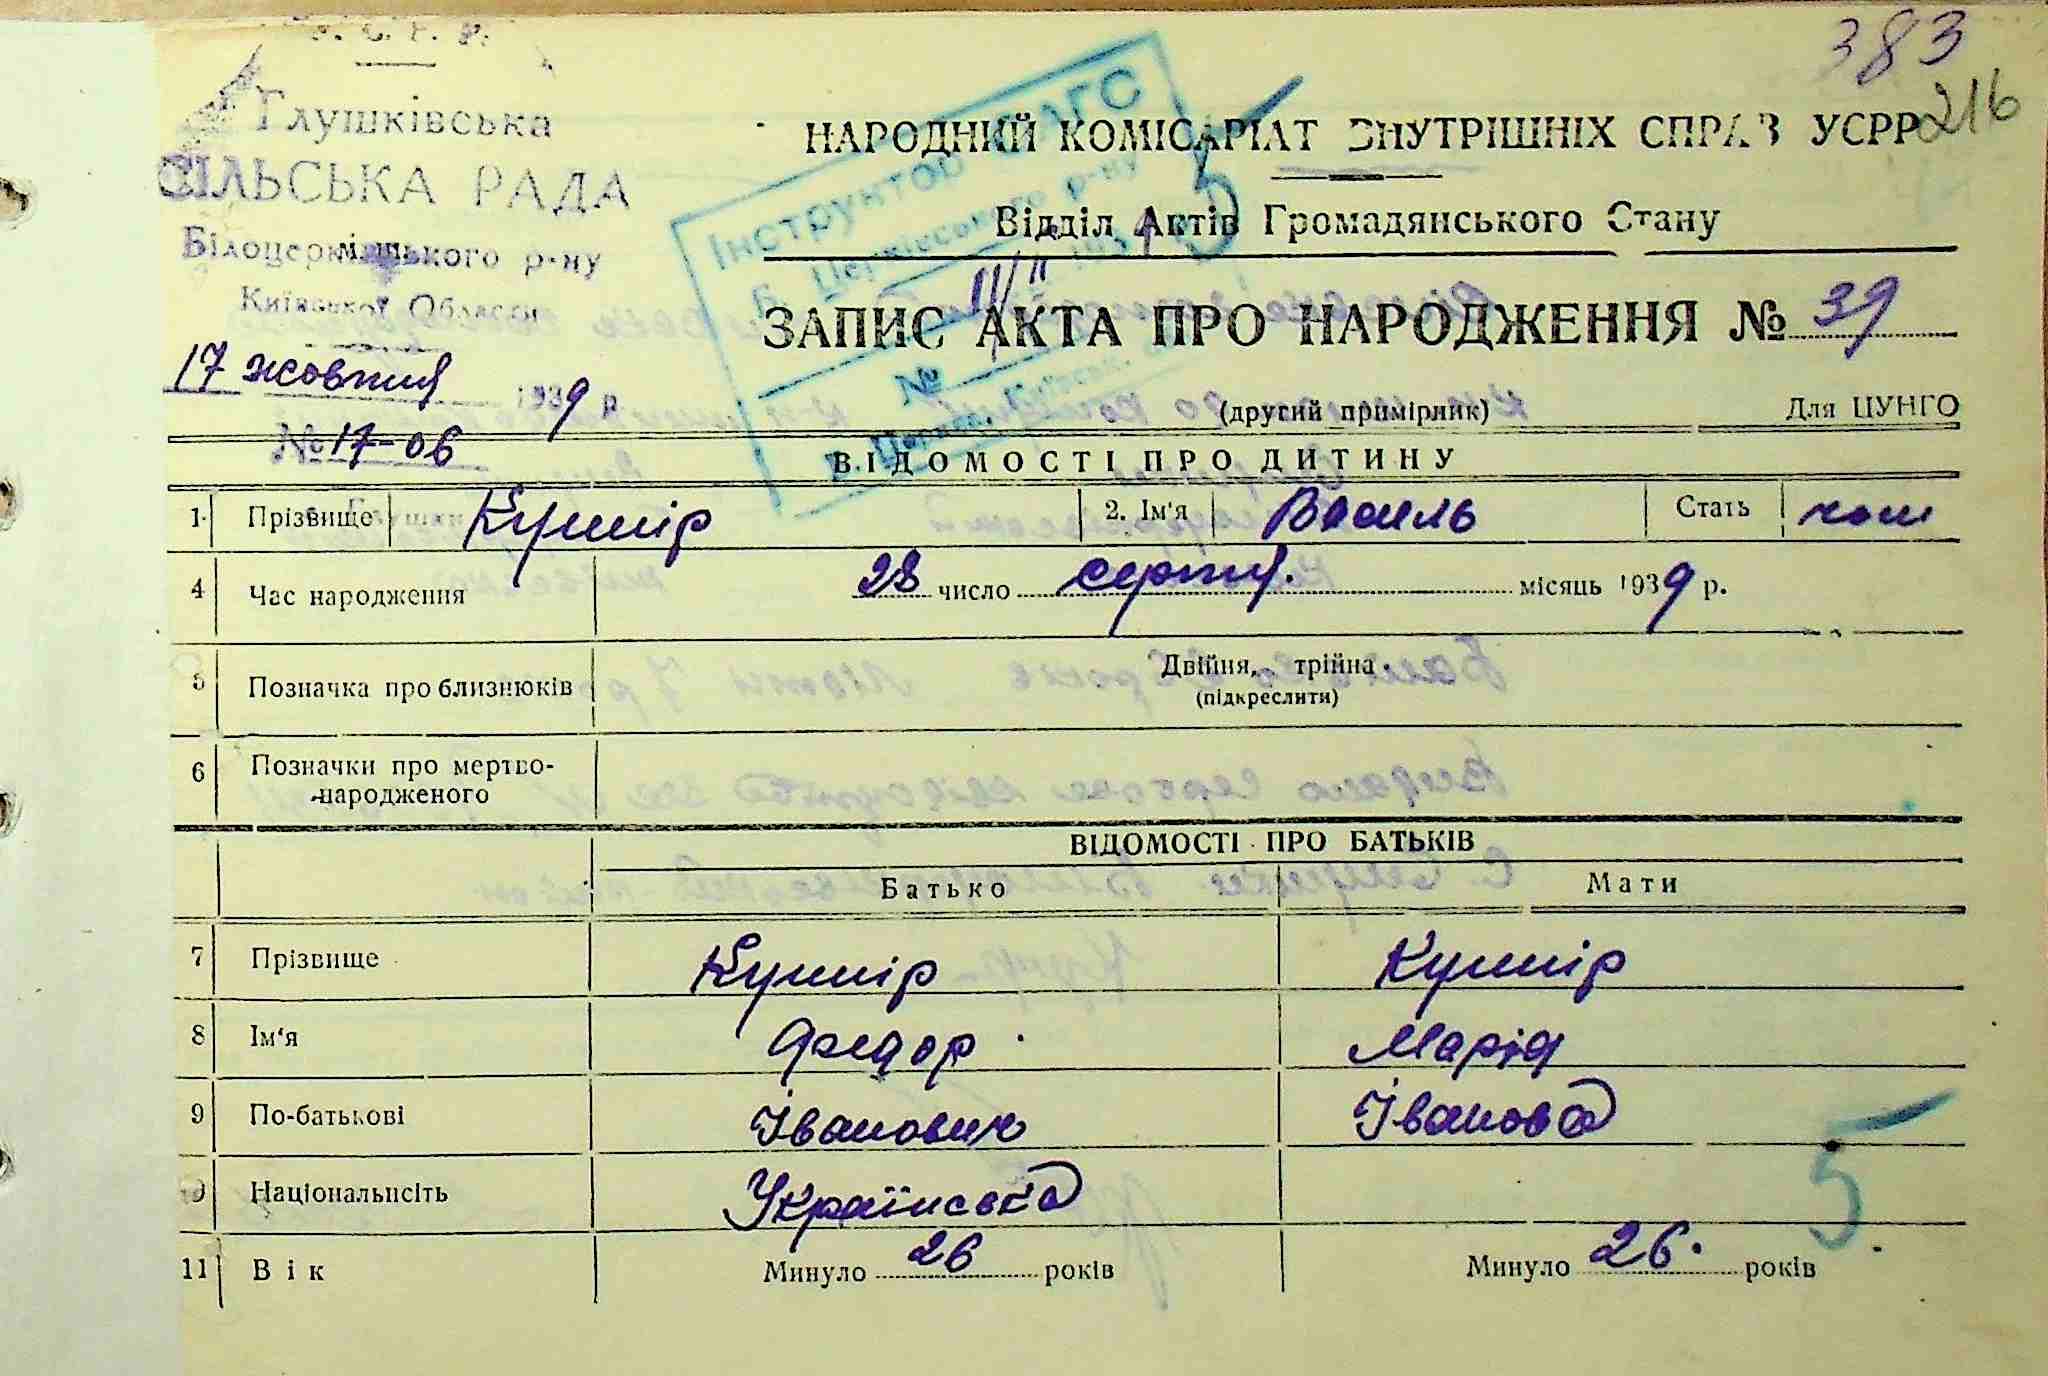 383
216
У. С. Р. Р.
Глушківська
СІЛЬСЬКА РАДА
Білоцерківського р-ну
Київської Області
17 жовтня 1939 р
№ 17-06
Інструктор ЗАГС
Б. Церківського р-ну
№
НАРОДНИЙ КОМІСАРІАТ ВНУТРІШНІХ СПРАВ УСРР
Відділ Актів Громадянського Стану
ЗАПИС АКТА ПРО НАРОДЖЕННЯ № 39
(другий примірник) Для ЦУНГО
ВІДОМОСТІ ПРО ДИТИНУ
1. Прізвище Кушнір 2. Ім'я Василь Стать чол
4 Час народження 28 число серпня місяць 1939 р.
5 Позначка про близнюків Двійня, трійна
(підкреслити)
6 Позначки про мертво-
народженого
ВІДОМОСТІ ПРО БАТЬКІВ
Батько Мати
7 Прізвище Кушнір Кушнір
8 Ім'я Федор Марія
9 По-батькові Іванович Іванова
Національність Українська
11 Вік Минуло 26 років Минуло 26 років
5
5